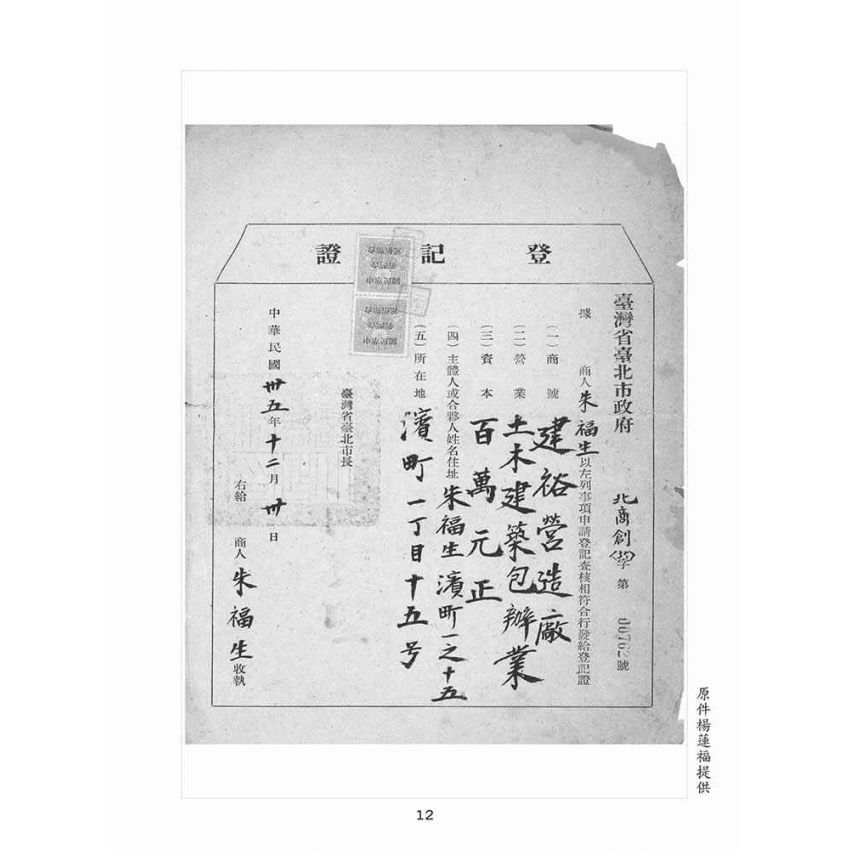 登記證
臺灣省臺北市政府 北商創字第 號
據 商人朱福生以左列事項申請登記查核相符合行發給登記證
(一)商號 建裕營造廠
(二)營業 土木建築包辦業
(三)資本 百萬元正
(四)主體人或合夥人姓名住址 朱福生 濱町一之十五
(五)所在地 濱町一丁目十五号
臺灣省臺北市長
中華民國卅五年十二月卅日
右給 商人朱福生收執
原件楊蓮福提供
12